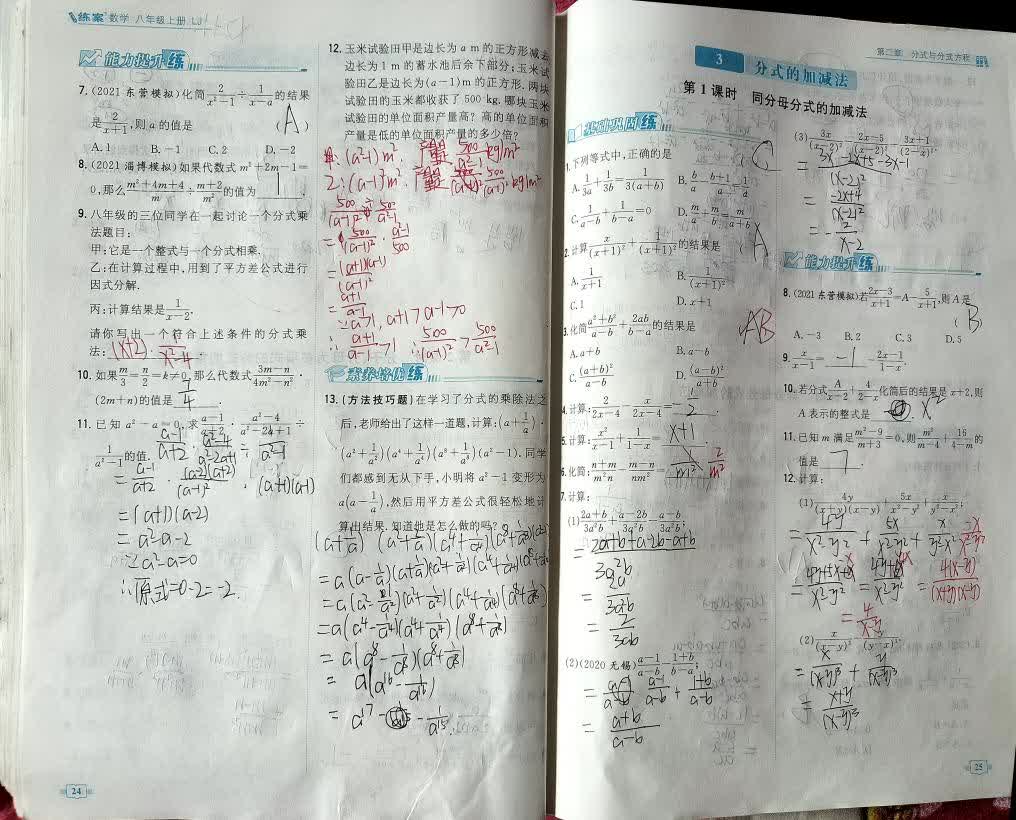 练案 数学 八年级上册 LJ
能力提升练
7.(2021东营模拟)化简\frac{2}{x^2-1}÷\frac{1}{x-a}的结果
是\frac{2}{x+1},则a的值是 ( A )
A.1 B.-1 C.2 D.-2
8.(2021淄博模拟)如果代数式m^2+2m-1=
0,那么\frac{m^2+4m+4}{m}÷\frac{m+2}{m^2}的值为 1 .
9.八年级的三位同学在一起讨论一个分式乘
法题目:
甲:它是一个整式与一个分式相乘.
乙:在计算过程中,用到了平方差公式进行
因式分解.
丙:计算结果是\frac{1}{x-2}.
请你写出一个符合上述条件的分式乘
法: (x+2)·\frac{1}{x^2-4}
10.如果\frac{m}{3}=\frac{n}{2}=k≠0,那么代数式\frac{3m-n}{4m^2-n^2}·
(2m+n)的值是 \frac{7}{4} .
11.已知a^2-a=0,求\frac{a-1}{a+2}·\frac{a^2-4}{a^2-2a+1}÷
\frac{1}{a^2-1}的值.
\frac{a-1}{a+2}·\frac{a^2-4}{a^2-2a+1}÷\frac{1}{a^2-1}
=\frac{a-1}{a+2}·\frac{(a-2)(a+2)}{(a-1)^2}·(a+1)(a-1)
=(a+1)(a-2)
=a^2-a-2
∵a^2-a=0
∴原式=0-2=-2.
24
12.玉米试验田甲是边长为a m的正方形减去
边长为1 m的蓄水池后余下部分;玉米试
验田乙是边长为(a-1)m的正方形.两块
试验田的玉米都收获了500 kg.哪块玉米
试验田的单位面积产量高?高的单位面积
产量是低的单位面积产量的多少倍?
甲:(a^2-1)m^2. 产量 \frac{500}{a^2-1}kg/m^2
乙:(a-1)^2m^2. 产量 \frac{500}{(a-1)^2} kg/m^2
\frac{500}{(a-1)^2}÷\frac{500}{a^2-1}
=\frac{500}{(a-1)^2}·\frac{a^2-1}{500}
=\frac{(a+1)(a-1)}{(a-1)^2}
=\frac{a+1}{a-1}
∵a>1, a+1>a-1>0
∴\frac{a+1}{a-1}>1 ∴\frac{500}{(a-1)^2}>\frac{500}{a^2-1}
素养培优练
13.(方法技巧题)在学习了分式的乘除法之
后,老师给出了这样一道题,计算:(a+\frac{1}{a})·
(a^2+\frac{1}{a^2})(a^4+\frac{1}{a^4})(a^8+\frac{1}{a^8})(a^2-1).同学
们都感到无从下手,小明将a^2-1变形为
a(a-\frac{1}{a}),然后用平方差公式很轻松地计
算出结果.知道他是怎么做的吗?
(a+\frac{1}{a})(a^2+\frac{1}{a^2})(a^4+\frac{1}{a^4})(a^8+\frac{1}{a^8})(a^2-1)
=a(a-\frac{1}{a})(a+\frac{1}{a})(a^2+\frac{1}{a^2})(a^4+\frac{1}{a^4})(a^8+\frac{1}{a^8})
=a(a^2-\frac{1}{a^2})(a^2+\frac{1}{a^2})(a^4+\frac{1}{a^4})(a^8+\frac{1}{a^8})
=a(a^4-\frac{1}{a^4})(a^4+\frac{1}{a^4})(a^8+\frac{1}{a^8})
=a(a^8-\frac{1}{a^8})(a^8+\frac{1}{a^8})
=a(a^{16}-\frac{1}{a^{16}})
=a^{17}-\frac{1}{a^{15}}.
第二章 分式与分式方程
3 分式的加减法
第1课时 同分母分式的加减法
基础巩固练
1.下列等式中,正确的是 ( C )
A.\frac{1}{3a}+\frac{1}{3b}=\frac{1}{3(a+b)} B.\frac{b}{a}-\frac{b+1}{a}=\frac{1}{a}
C.\frac{1}{a-b}+\frac{1}{b-a}=0 D.\frac{m}{a}+\frac{m}{b}=\frac{m}{a+b}
2.计算\frac{x}{(x+1)^2}+\frac{1}{(x+1)^2}的结果是 ( A
A.\frac{1}{x+1} B.\frac{1}{(x+1)^2}
C.1 D.x+1
3.化简\frac{a^2+b^2}{a-b}+\frac{2ab}{b-a}的结果是 AB
A.a+b B.a-b
C.\frac{(a+b)^2}{a-b} D.\frac{(a-b)^2}{a+b}
4.计算:\frac{2}{2x-4}-\frac{x}{2x-4}= -\frac{1}{2} .
5.计算:\frac{x^2}{x-1}+\frac{1}{1-x}= x+1 .
6.化简:\frac{n+m}{m^2n}-\frac{m-n}{nm^2}= \frac{2}{m^2}
7.计算:
(1)\frac{2a+b}{3a^2b}+\frac{a-2b}{3a^2b}-\frac{a-b}{3a^2b};
=\frac{2a+b+a-2b-a+b}{3a^2b}
=\frac{2a}{3a^2b}
=\frac{2}{3ab}
(2)(2020无锡)\frac{a-1}{a-b}-\frac{1+b}{b-a};
=\frac{a-1}{a-b}+\frac{1+b}{a-b}
=\frac{a+b}{a-b}
(3)\frac{3x}{(x-2)^2}-\frac{2x-5}{(x-2)^2}-\frac{3x+1}{(2-x)^2}.
=\frac{3x-2x+5-3x-1}{(x-2)^2}
=\frac{-2x+4}{(x-2)^2}
=-\frac{2}{x-2}
能力提升练
8.(2021东营模拟)若\frac{2x-3}{x+1}=A-\frac{5}{x+1},则A是
( B )
A.-3 B.2 C.3 D.5
9.\frac{x}{x-1}= -1 -\frac{2x-1}{1-x}.
10.若分式\frac{A}{x-2}+\frac{4}{2-x}化简后的结果是x+2,则
A表示的整式是 x^2
11.已知m满足\frac{m^2-9}{m+3}=0,则\frac{m^2}{m-4}+\frac{16}{4-m}的
值是 7 .
12.计算:
(1)\frac{4y}{(x+y)(x-y)}+\frac{5x}{x^2-y^2}+\frac{x}{y^2-x^2};
=\frac{4y}{x^2-y^2}+\frac{5x}{x^2-y^2}+\frac{-x}{x^2-y^2}
=\frac{4(x+y)}{(x+y)(x-y)}
=\frac{4}{x-y}
(2)\frac{x}{(x-y)^3}-\frac{y}{(y-x)^3}.
=\frac{x}{(x-y)^3}+\frac{y}{(x-y)^3}
=\frac{x+y}{(x-y)^3}
25